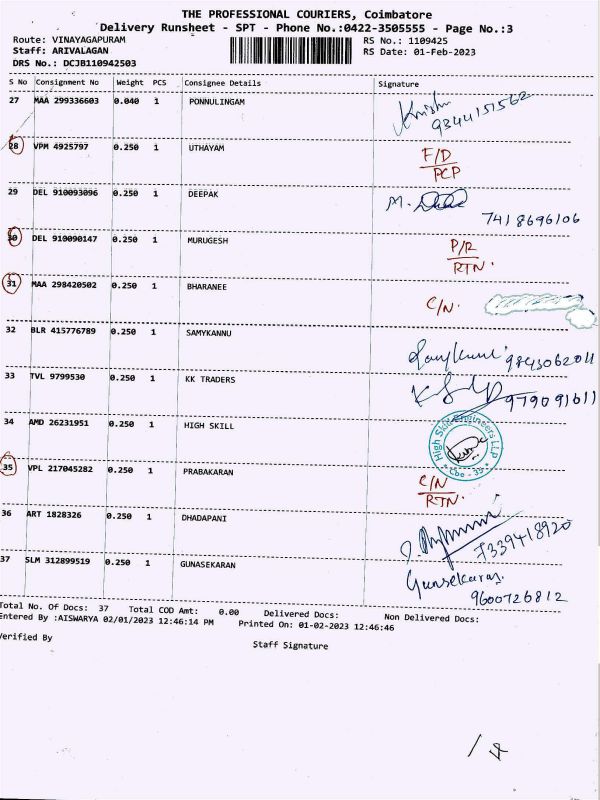 THE PROFESSIONAL COURIERS, Coimbatore
Delivery Runsheet - SPT - Phone No.:0422-3505555 - Page No.:3
Route: VINAYAGAPURAM
RS No.: 1109425
Staff: ARIVALAGAN
RS Date: 01-Feb-2023
DRS No.: DCJB110942503
S No Consignment No Weight PCS Consignee Details Signature
27 MAA 299336603 0.040 1 PONNULINGAM
9344151562
28 VPM 4925797 0.250 1 UTHAYAM F/D
PCP
29 DEL 910093096 0.250 1 DEEPAK M.
7418696106
30 DEL 910090147 0.250 1 MURUGESH P/R
RTN.
31 MAA 298420502 0.250 1 BHARANEE C/N.
32 BLR 415776789 0.250 1 SAMYKANNU
9843062011
33 TVL 9799530 0.250 1 KK TRADERS
979091611
34 AMD 26231951 0.250 1 HIGH SKILL High Skill Engineers LLP
Cbe - 35
35 VPL 217045282 0.250 1 PRABAKARAN C/N
RTN.
36 ART 1828326 0.250 1 DHADAPANI
7339418920
37 SLM 312899519 0.250 1 GUNASEKARAN Gunsekaran.
9600726812
Total No. Of Docs: 37 Total COD Amt: 0.00 Delivered Docs: Non Delivered Docs:
Entered By :AISWARYA 02/01/2023 12:46:14 PM Printed On: 01-02-2023 12:46:46
Verified By
Staff Signature